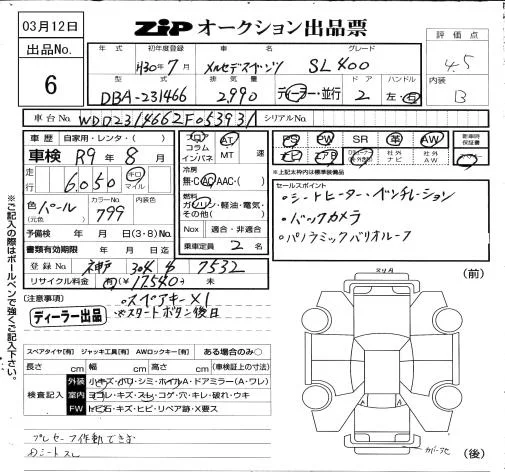 03月12日
ZIP オークション出品票
出品No.
6
年式 初年度登録 車名 グレード
H30年7月 メルセデスベンツ SL400
型式 排気量 ドア ハンドル
DBA-231466 2,990 ディーラー・並行 2 左・右
評価点
4.5
内装
B
車台No. WDD2314662F053931 シリアルNo.
車歴 自家用・レンタ・( )
車検 R9年8月
走行 6,050 キロ マイル
色(元色) パール カラーNo. 799 内装色
予備検 年 月 日(3・8)No.
書類有効期限 年 月 日迄
登録No. 神戸 304 7532
リサイクル料金 有(¥17540) 未
フロア コラム インパネ AT MT 速
冷房
無・C・AC・AAC・( )
燃料
ガソリン・軽油・電気・その他( )
Nox 適合・非適合
乗車定員 2 名
PS PW SR 革 AW 新車時保証書
ナビ エアB 社外ナビ 社外AW
※上記太枠内は標準装備品
セールスポイント
・シートヒーター・ベンチレーション
・バックカメラ
・パノラミックバリオルーフ
※ご記入の際はボールペンで強くご記入下さい。
注意事項
ディーラー出品
○スペアキー×1
※スタートボタン後日
(前)
スリA
スペアタイヤ[有] ジャッキ工具[有] AWロックキー[有] ある場合のみ○
長さ cm 幅 cm 高さ cm (車検証上の寸法)
検査記入
外装 小キズ・小凹・シミ・ホイルA・ドアミラー(A・ワレ)
室内 ヨゴレ・キズ・スレ・コゲ・穴・キレ・破れ・ウキ
FG トビ石・キズ・ヒビ・リペア跡・X要ス
プレセーフ作動できず
Dシートスレ
(後)